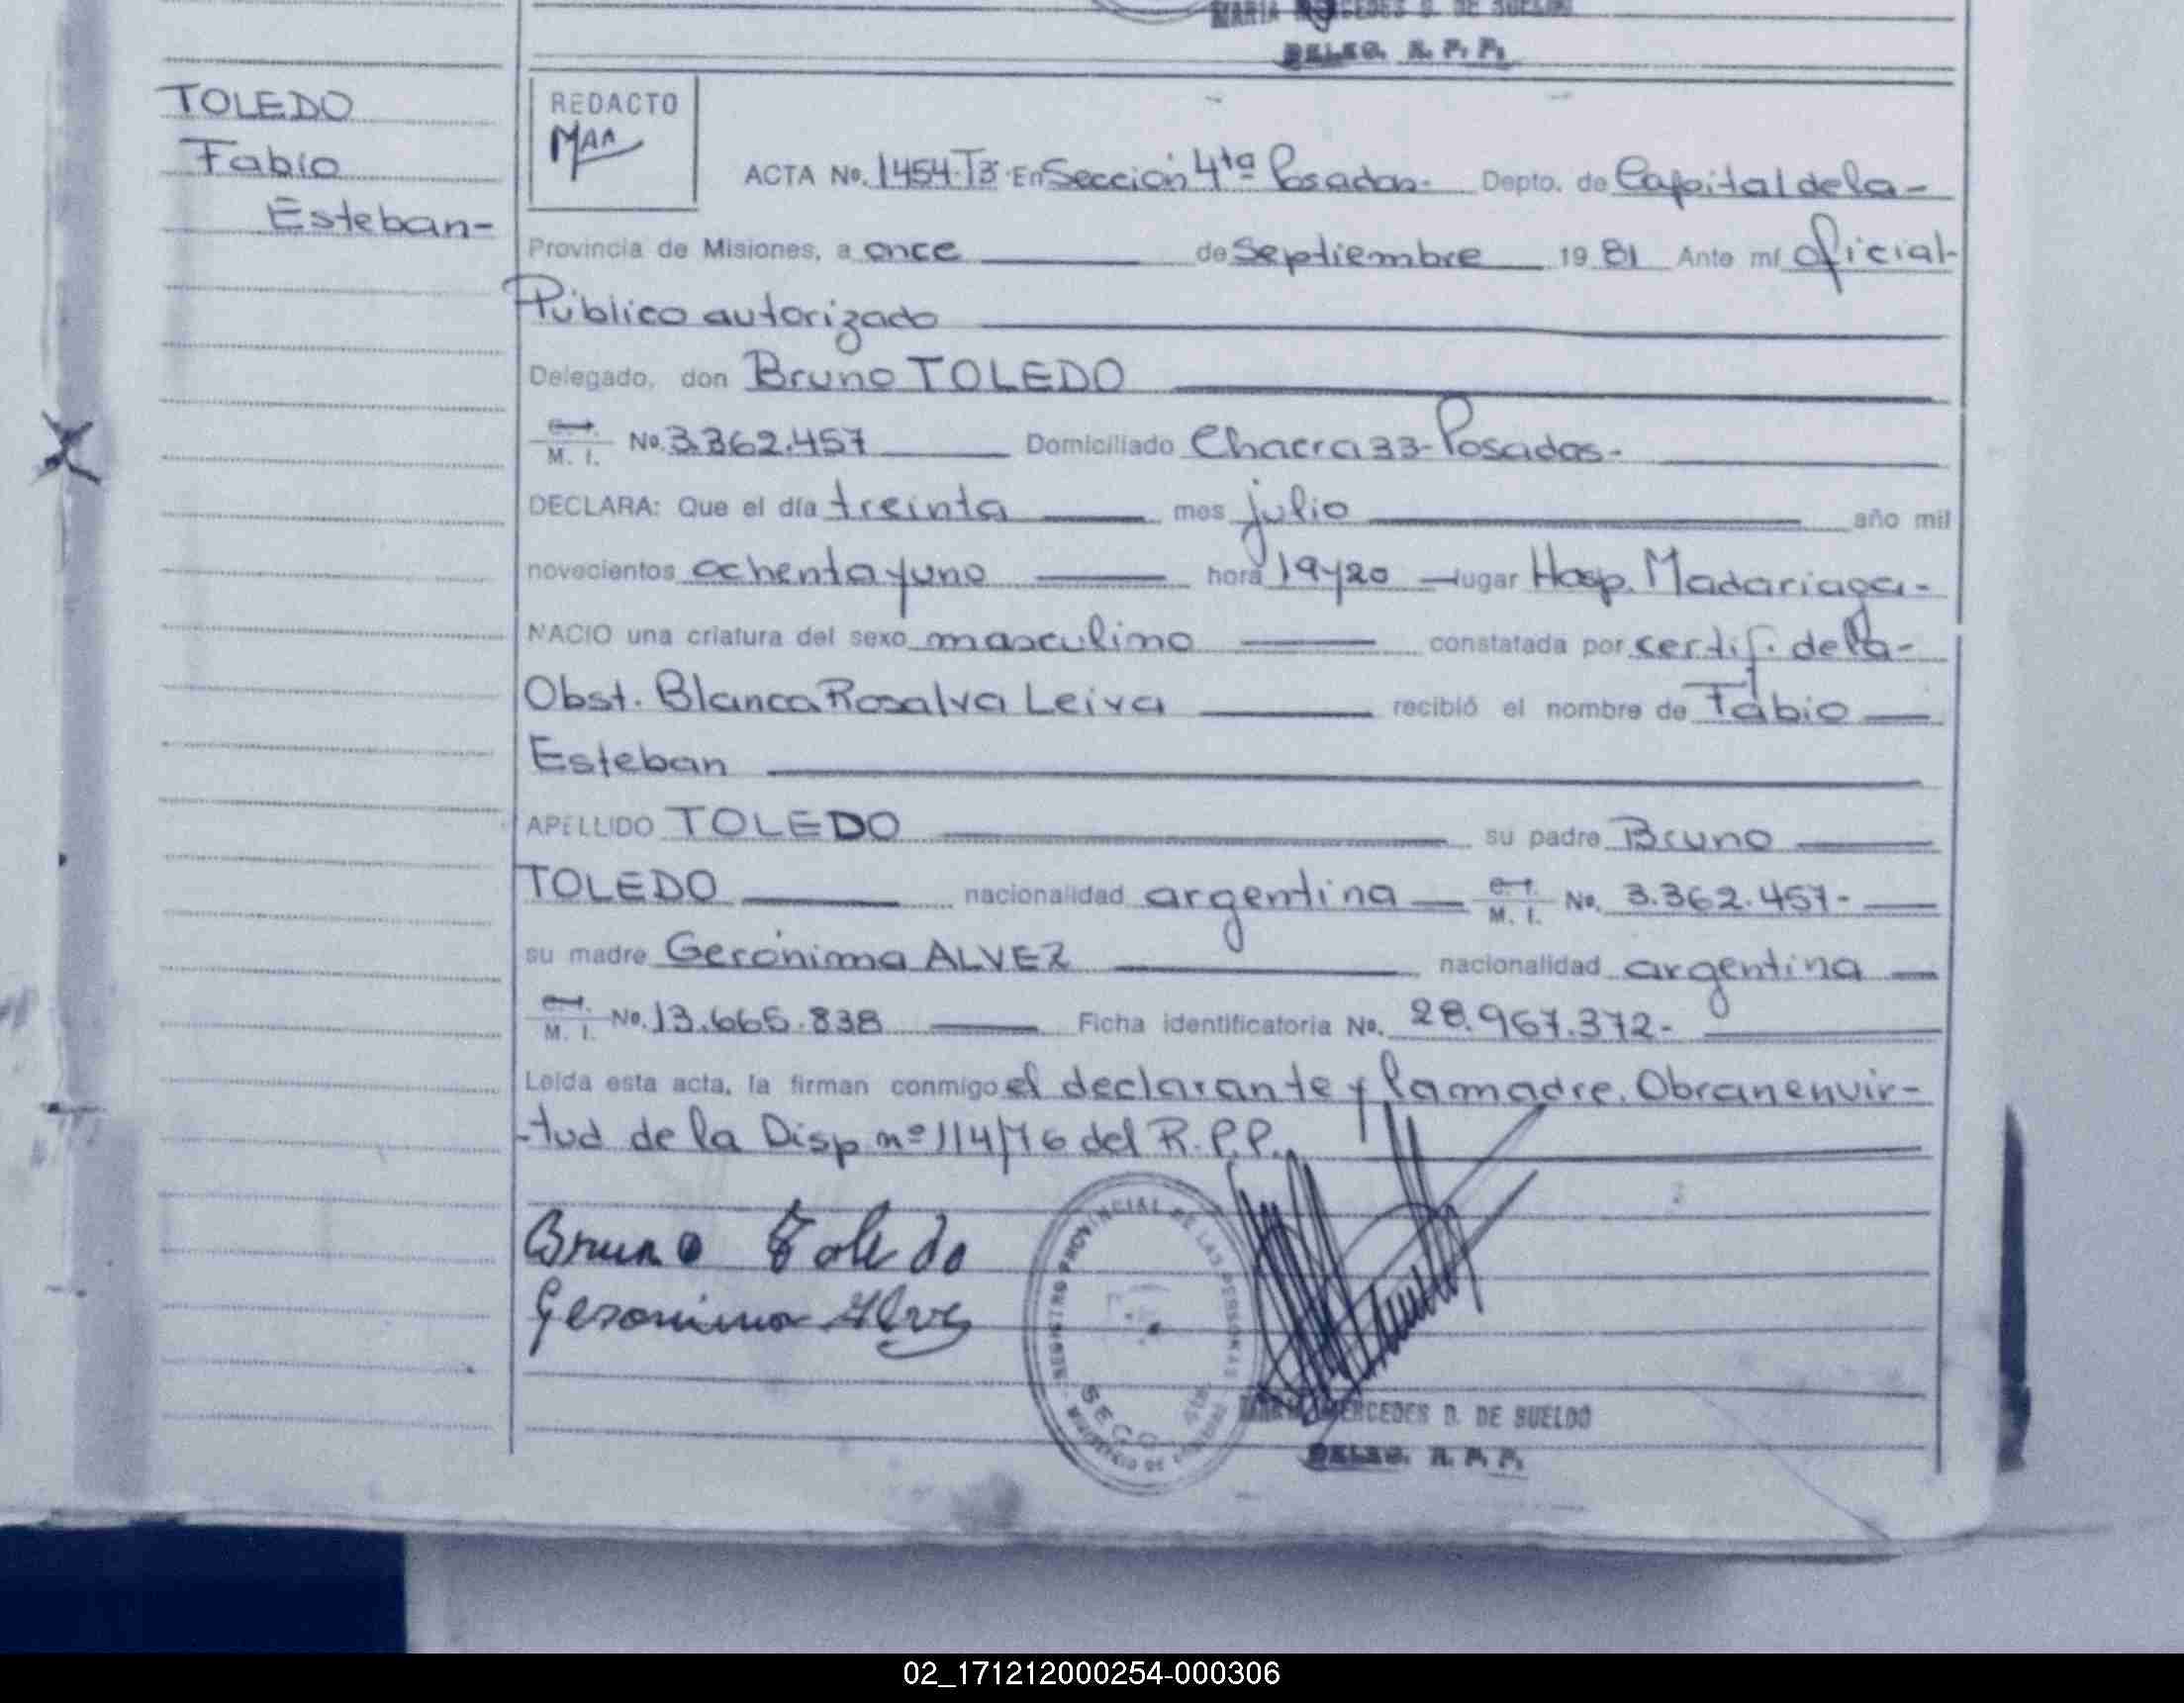 MARIA MERCEDES D. DE SUELDO
DELEG. R. P. P.
TOLEDO
Fabio
Esteban-
REDACTO
ACTA No. 1454-T3- En Sección 4ta Posadas- Depto. de Capital de la-
Provincia de Misiones, a once de Septiembre 19 81 Ante mí oficial-
Público autorizado
Delegado, don Bruno TOLEDO
M. I. No. 3.362.457 Domiciliado Chacra 33-Posadas-
DECLARA: Que el día treinta mes julio año mil
novecientos ochenta y uno hora 19y20 lugar Hosp. Madariaga-
NACIO una criatura del sexo masculino constatada por certif. de la-
Obst. Blanca Rosalva Leiva recibió el nombre de Fabio
Esteban
APELLIDO TOLEDO su padre Bruno
TOLEDO nacionalidad argentina M. I. No. 3.362.457-
su madre Gerónima ALVEZ nacionalidad argentina
M. I. No. 13.665.838 Ficha identificatoria No. 28.967.372-
Leída esta acta, la firman conmigo el declarante y la madre. Obran en vir-
-tud de la Disp nº 114/76 del R.P.P.
Bruno Toledo
Geronima Alvez
REGISTRO PROVINCIAL DE LAS PERSONAS
SECC 4ta
MARIA MERCEDES D. DE SUELDO
DELEG. R. P. P.
02_171212000254-000306